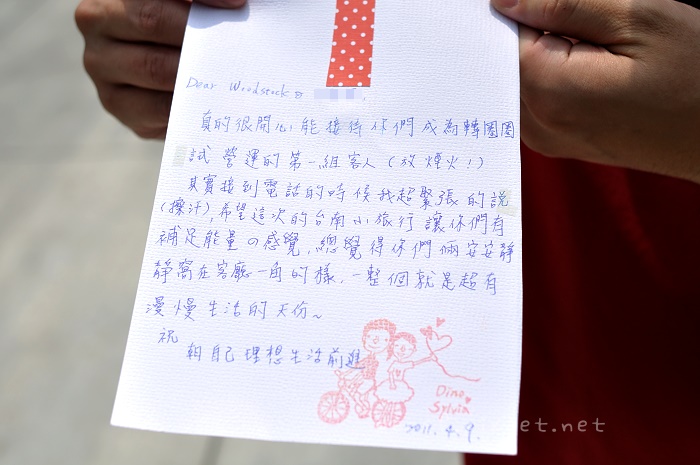 Dear Woodstock &
真的很開心能接待你們成為轉圈圈
試營運的第一組客人(放煙火!)
其實接到電話的時候我超緊張的說
(擦汗),希望這次的台南小旅行讓你們有
補足能量の感覺,總覺得你們倆安安靜
靜窩在客廳一角的樣,一整個就是超有
漫慢生活的天份~
祝
朝自己理想生活前進
Dino
Sylvia
2011.4.9.
et.net